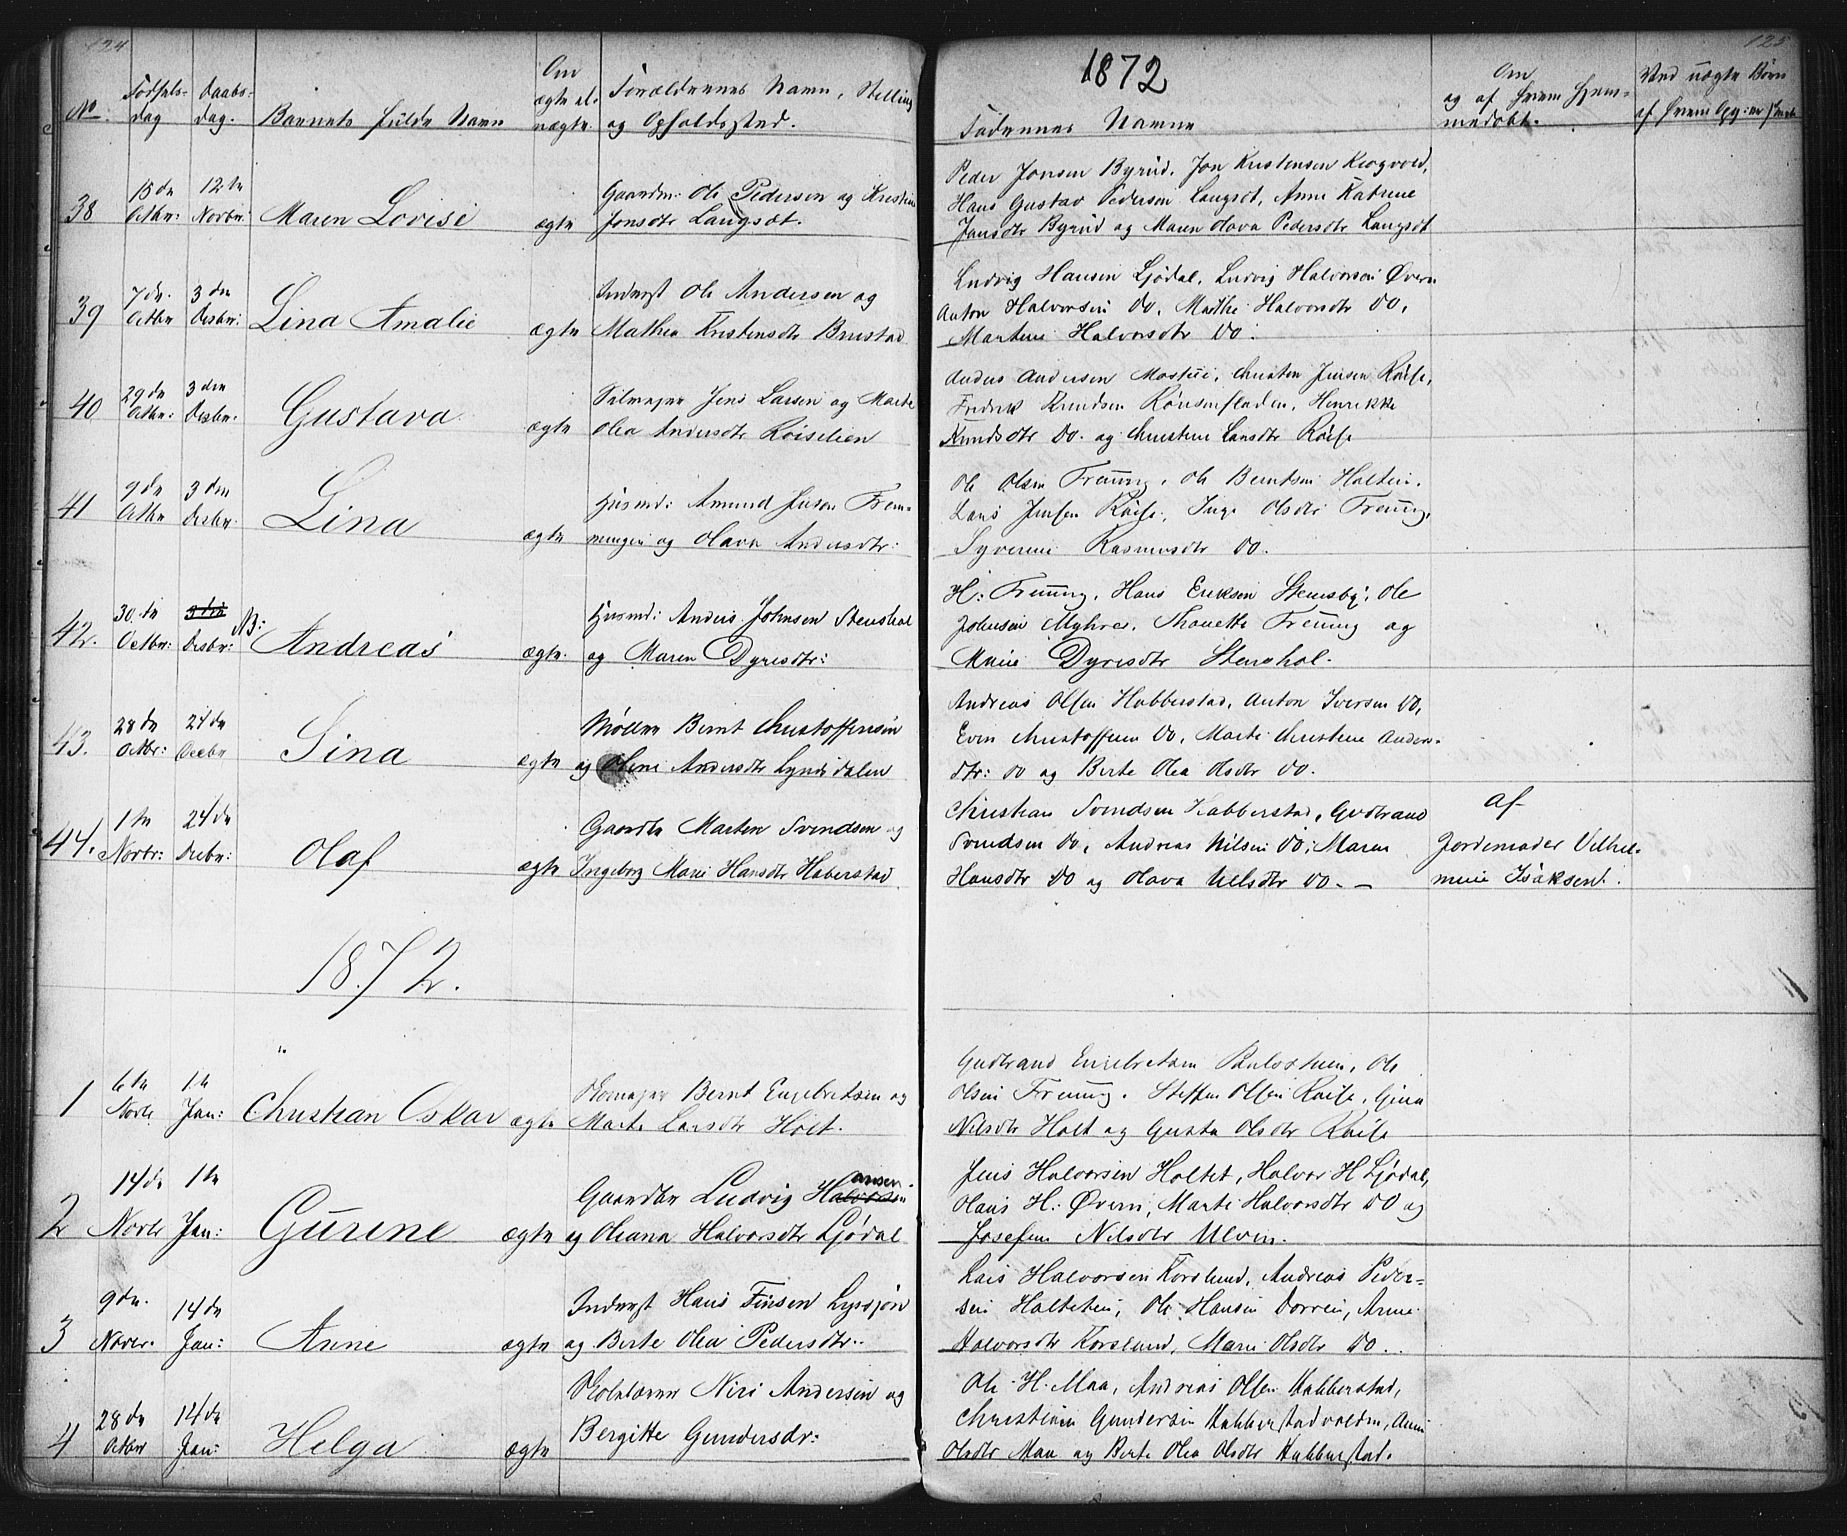 124
No.
Fødsels-
dag
Daabs-
dag.
Barnets fulde Navn
Om
ægte el.
uægte.
Forældrenes Navn, Stilling
og Opholdssted.
38
15de
Octbr:
12te
Novbr:
Maren Lovise
ægte
Gaardm: Ole Pedersen og Kristine
Jonsdtr Langsæt.
39
7de
Octbr
3die
Desbr:
Lina Amalie
ægte
Inderst Ole Andersen og
Mathea Kristensdtr Brustad
40
29de
Octbr:
3die
Desbr.
Gustava
ægte
Jens Larsen og Marte
Olea Andersdtr Röiselien
41
9de
Octbr
3die
Desbr.
Lina
ægte
Husmd: Amund Frem-
mingen og Olava Andersdtr:
42.
30.de
Octbr:
3die
Desbr:
NB:
Andreas
ægte.
Husmd: Anders Johnsen Stenshol
og Maren Dyresdtr:
43.
28de
Octbr:
24de
Decbr
Sina
ægte
Møller Bernt Christoffersen
og Oline Andersdtr Lyndsdalen
44.
1te
Novbr:
24de
Decbr:
Olaf
ægte
Gaardbr Marten Svendsen og
Ingeborg Marie Hansdtr Haberstad
1872.
1
6te
Novbr.
1te
Jan:
Christian Oskar
ægte
Bernt Engebretsen og
Marte Larsdtr Holt.
2
14de
Novbr
1te
Jan:
Gurine
ægte
Gaardbr Ludvig Halvorsen ansen
og Oleana Halvorsdtr Ljødal
3
9de.
Novbr.
14de
Jan:
Anne
ægte
Inderst Hans Finsen Lyssjøen
og Berte Olea Pedersdtr.
4
28de
Octbr
14de
Jan:
Helga
ægte
Andersen og
Bergitte Gundersdr:
125
1872
Faddernes Navne
Om
og af hvem Hjem-
medøbt.
Ved uægte Børn
af hvem
Peder Jonsen Byrud, Jon Kristensen Krogvold,
Hans Gustav Pedersen Langsæt, Anne Katrine
Jansdtr Byrud og Maren Olava Pedersdtr Langsæt
Ludvig Hansen Ljödal, Ludvig Halvorsen Øvern
Anton Halvorsen Do, Mathe Halvorsdtr Do,
Martine Halvorsdtr Do.
Anders Andersen Mostue, Christen Jensen Röise,
Fredrik Knudsen Rönsenfladen, Henrikke
Knudsdtr Do. og Christine Larsdtr Röise
Ole Olsen Freming, Ole Berntsen Holten,
Lars Jensen Röise, Inge Olsdtr Freming,
Syverine Rasmusdtr Do.
H: Freming, Hans Eriksen Stensby, Ole
Johnsen Myhrer, Thonette Freming og
Marie Dyresdtr Stenshol.
Andreas Olsen Habberstad, Anton Iversen Do,
Even Christoffersen Do, Marte Christine Anders-
dtr: do og Berte Olea Olsdtr Do.
Christian Svendsen Habberstad, Gudbrand
Svendsen Do, Andreas Nilsen Do, Maren
Hansdtr Do og Olava Nilsdtr Do. —
af
Jordemoder Vilhel-
mine Isaksen.
Gudbrand Engebretsen, Ole
Olsen Freming, Steffen Olsen Röise, Gina
Nilsdtr Holt og Gusta Olsdtr Röise
Jens Halvorsen Holtet, Halvor H Ljødal,
Olaus H. Øvern, Marte Halvorsdtr Do og
Josefine Nilsdtr Ulven.
Lars Halvorsen Korslund, Andreas Peder-
sen Holteten, Ole Hansen Dorren, Anne
Halvorsdtr Korslund, Marie Olsdtr Do.
Ole H. Maa, Andreas Olsen Habberstad,
Christian Gundersen Habberstadvolden, Anne
Olsdtr Maa og Berte Olea Olsdtr Habberstad.